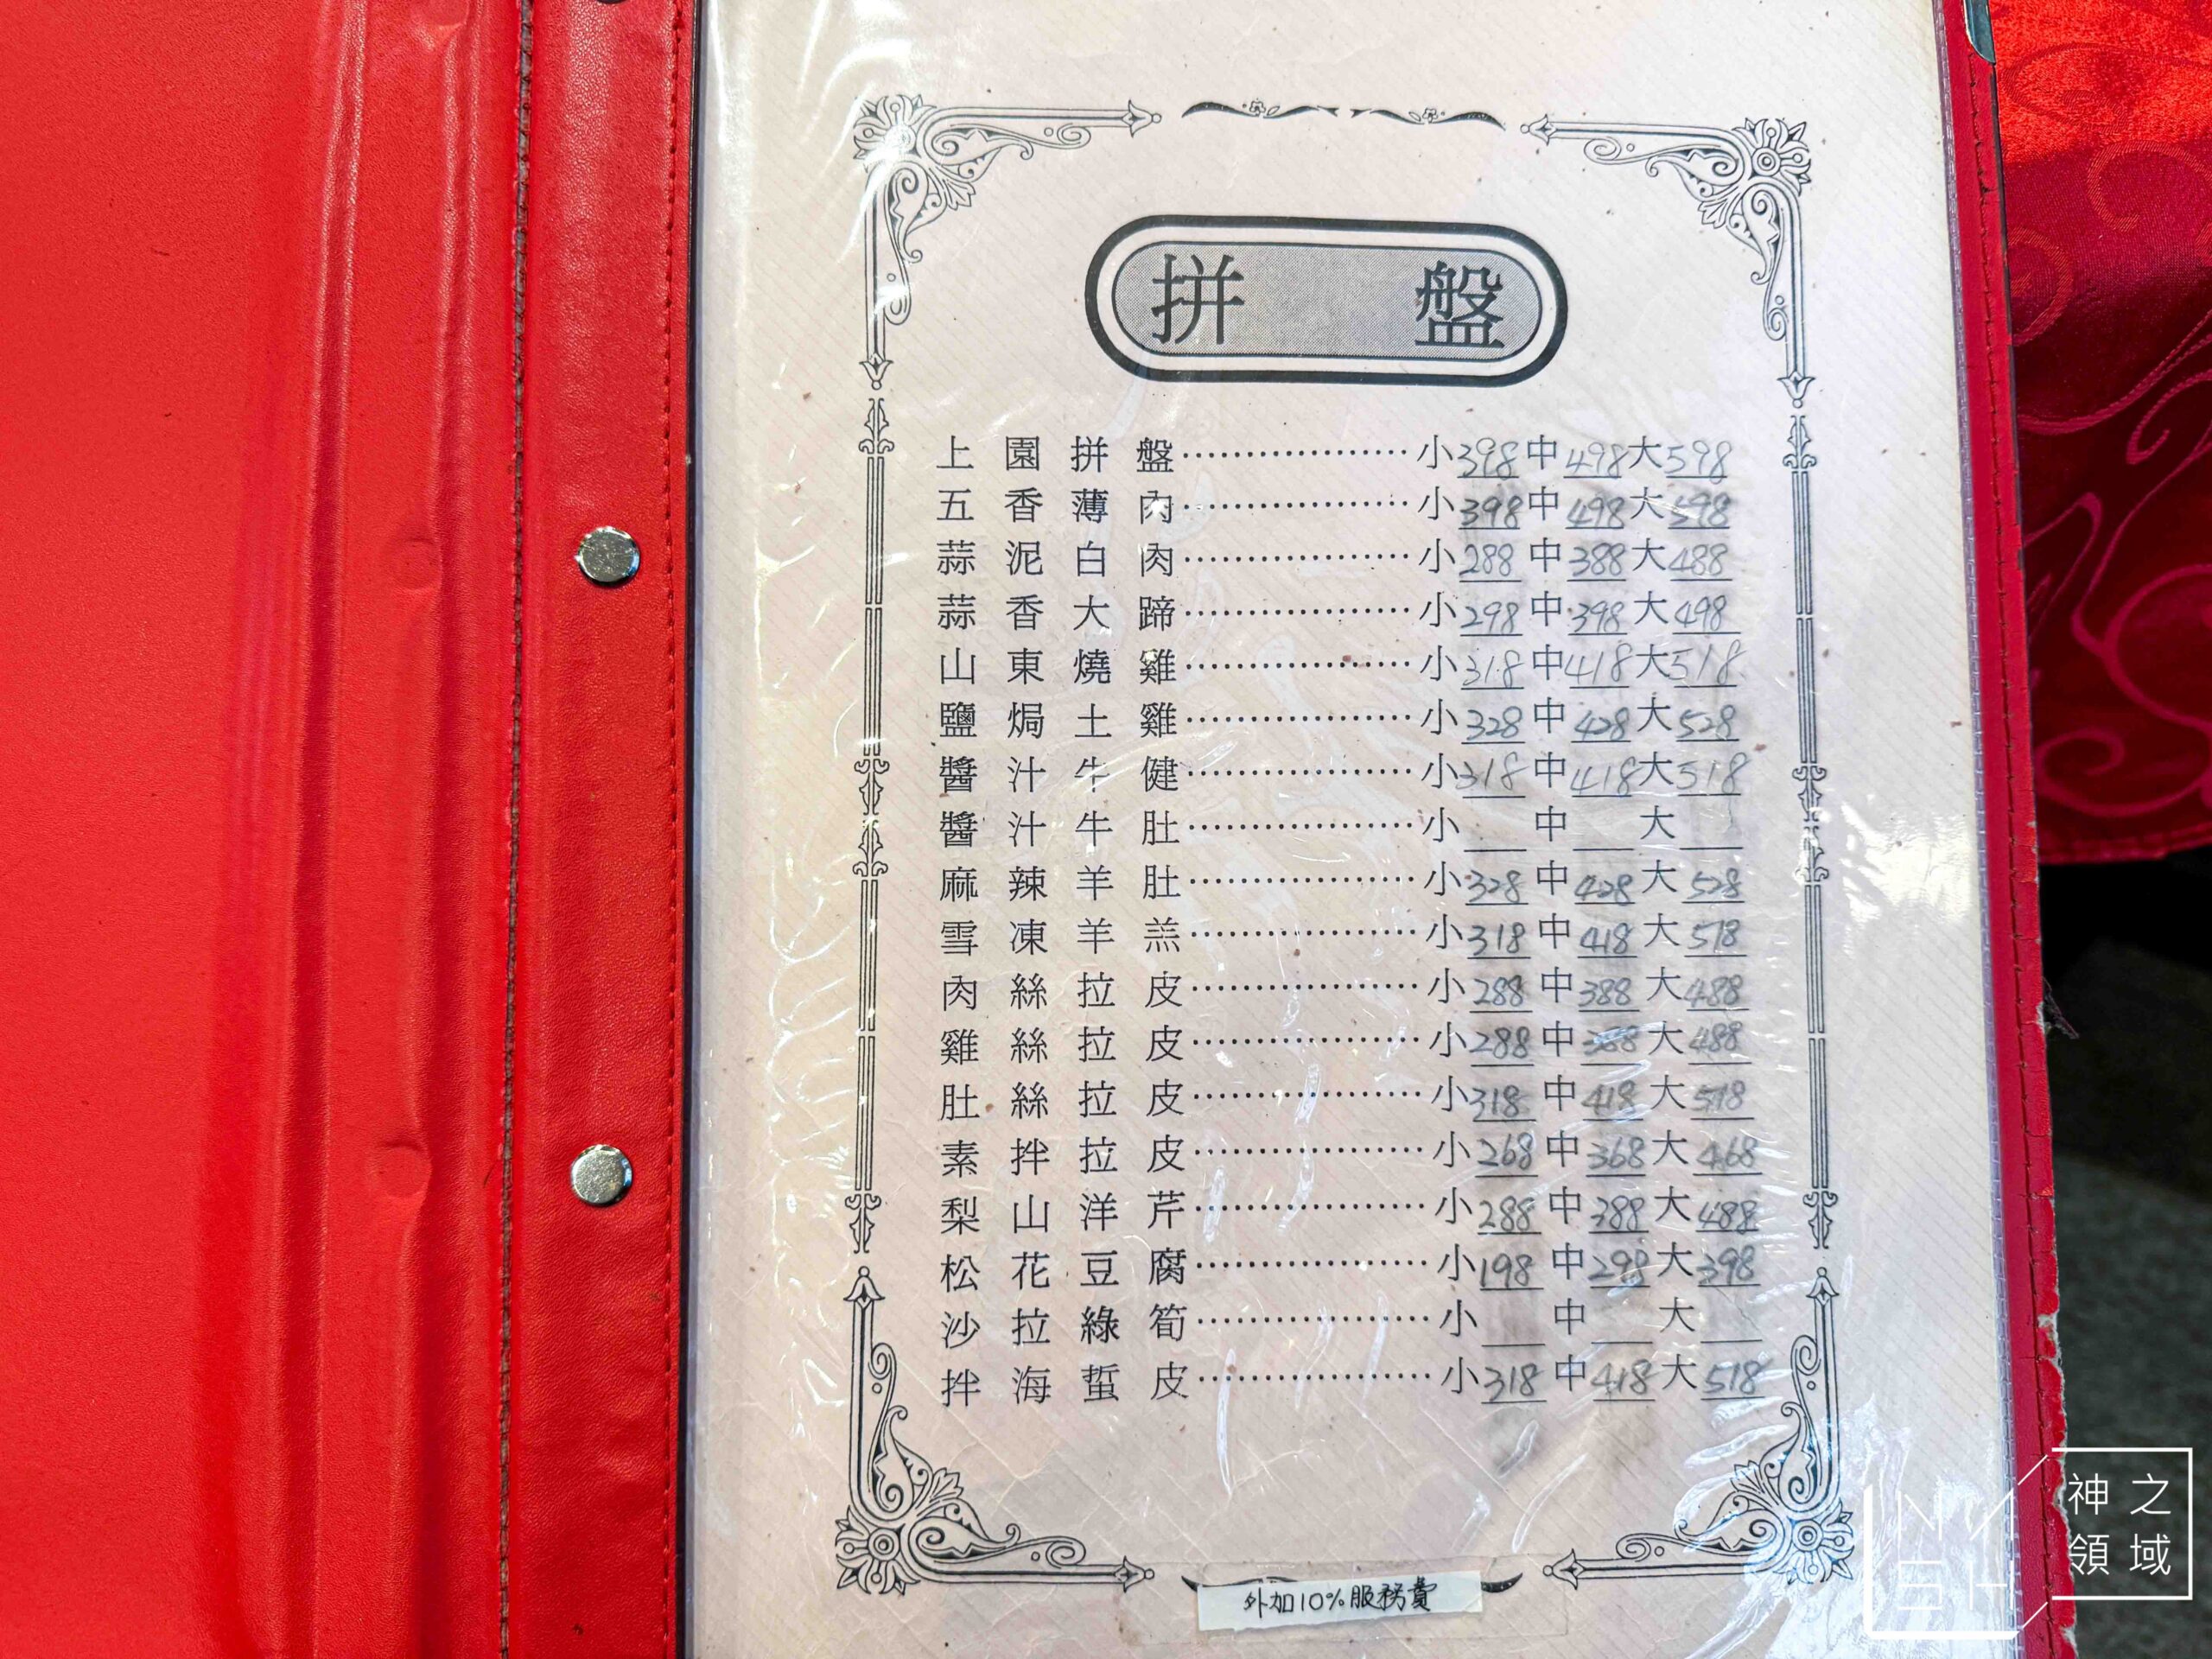 拼盤
上園拼盤………………小398中498大598
五香薄肉………………小398中498大598
蒜泥白肉………………小288中388大488
蒜香大蹄………………小298中398大498
山東燒雞………………小318中418大518
鹽焗土雞………………小328中428大528
醬汁牛健………………小318中418大518
醬汁牛肚………………小 中 大
麻辣羊肚………………小328中428大528
雪凍羊羔………………小318中418大518
肉絲拉皮………………小288中388大488
雞絲拉皮………………小288中388大488
肚絲拉皮………………小318中418大518
素拌拉皮………………小268中368大468
梨山洋芹………………小288中388大488
松花豆腐………………小198中298大398
沙拉綠筍………………小 中 大
拌海蜇皮………………小318中418大518
外加10%服務費
神之
領域